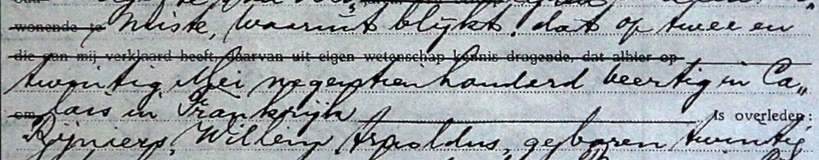 wonende te Heiste, waaruit blijkt, dat op twee en
die aan mij verklaard heeft, daarvan uit eigen wetenschap kennis dragende, dat alhier op
twintig Mei negentienhonderd veertig in Ca„
om lais in Frankrijk is overleden:
Reyniers, Willem Arnoldus, geboren twintig